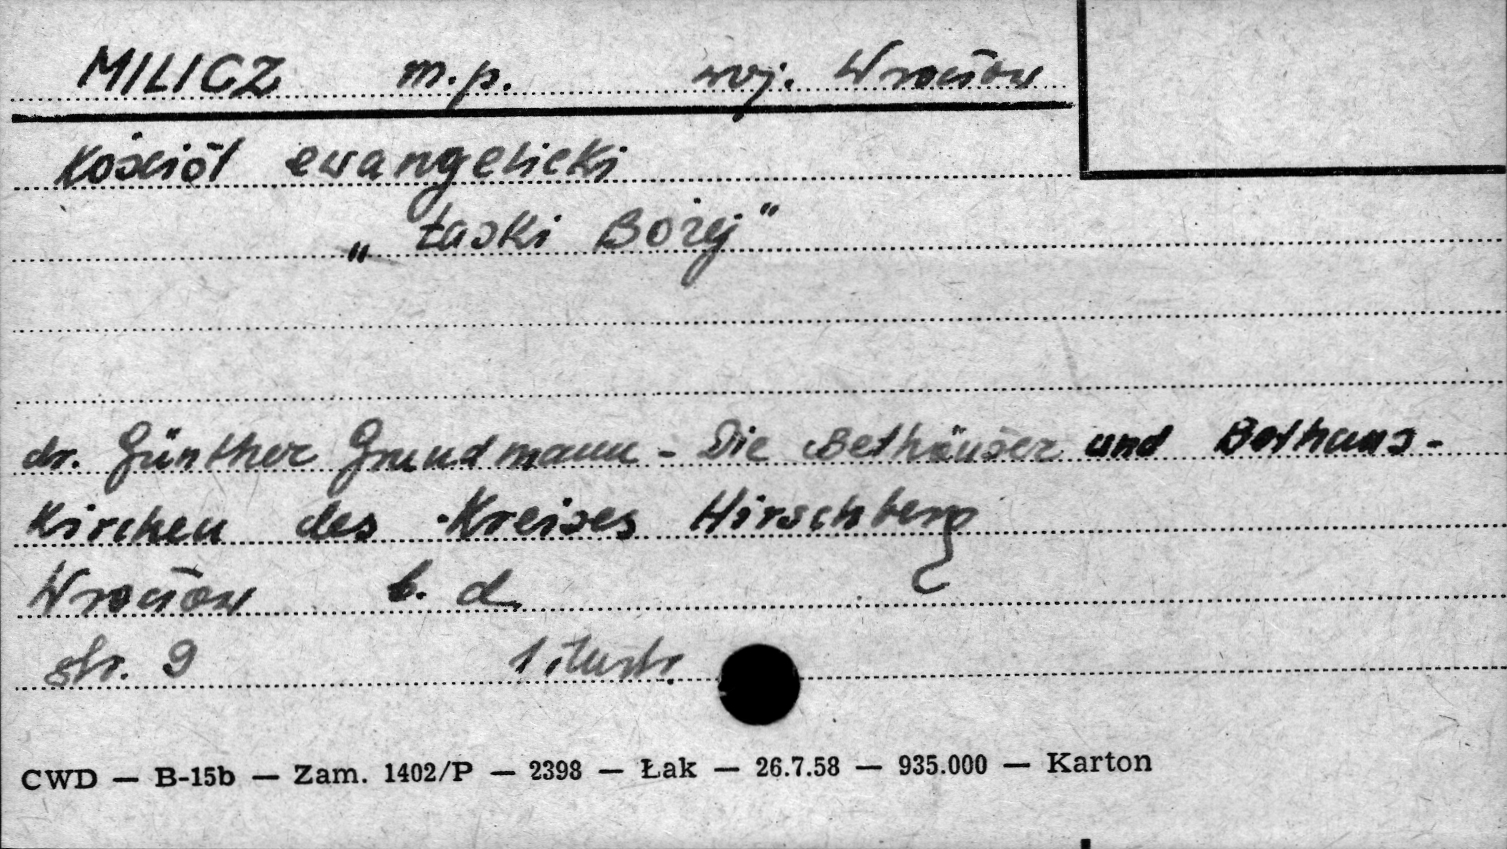 MILICZ m.p. woj. Wrocław
Kościół ewangelicki
„Łaski Bożej"
dr. Günther Grundmann - Die Bethäuser und Bethaus-
Kirchen des Kreises Hirschberg
Wrocław b. d.
str. 9 1 ilustr.
CWD — B-15b — Zam. 1402/P — 2398 — Łak — 26.7.58 — 935.000 — Karton